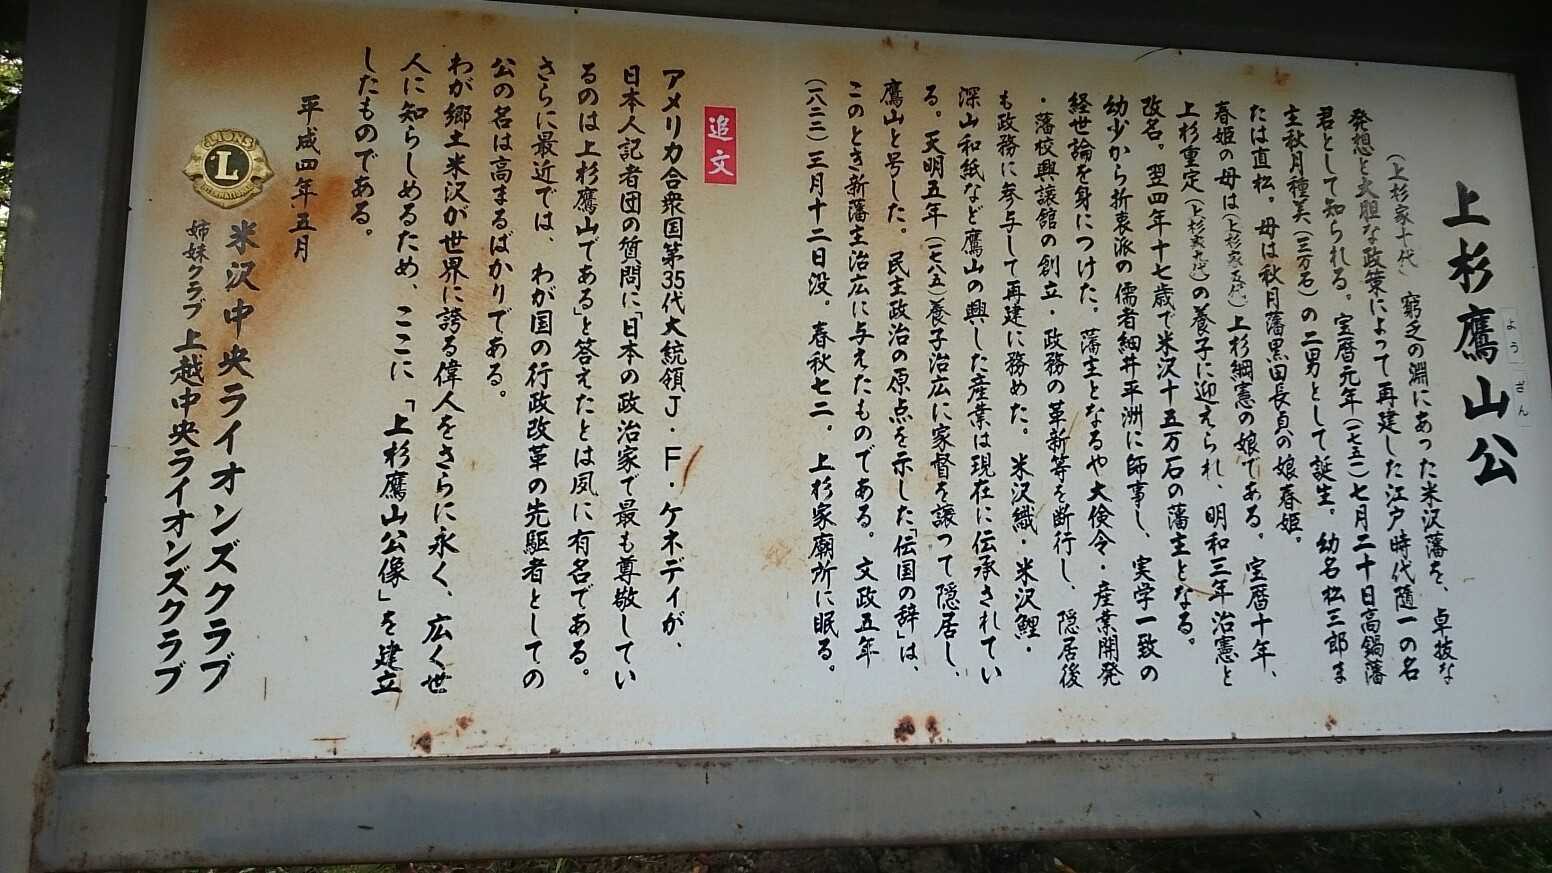 上杉鷹山公
よう
ざん
(上杉家十代) 窮乏の淵にあった米沢藩を、卓抜な
発想と大胆な政策によって再建した江戸時代随一の名
君として知られる。宝暦元年(一七五一)七月二十日高鍋藩
主秋月種美(三万石)の二男として誕生。幼名松三郎ま
たは直松。母は秋月藩黒田長貞の娘春姫。
春姫の母は(上杉家五代)上杉綱憲の娘である。宝暦十年、
上杉重定(上杉家九代)の養子に迎えられ、明和三年治憲と
改名。翌四年十七歳で米沢十五万石の藩主となる。
幼少から折衷派の儒者細井平洲に師事し、実学一致の
経世論を身につけた。藩主となるや大倹令・産業開発
・藩校興譲館の創立・政務の革新等を断行し、隠居後
も政務に参与して再建に務めた。米沢織・米沢鯉・
深山和紙など鷹山の興した産業は現在に伝承されてい
る。天明五年(一七八五)養子治広に家督を譲って隠居し、
鷹山と号した。民主政治の原点を示した「伝国の辞」は、
このとき新藩主治広に与えたものである。文政五年
(一八二二)三月十二日没。春秋七二。上杉家廟所に眠る。
追文
アメリカ合衆国第35代大統領J・F・ケネディが、
日本人記者団の質問に「日本の政治家で最も尊敬してい
るのは上杉鷹山である」と答えたとは夙に有名である。
さらに最近では、わが国の行政改革の先駆者としての
公の名は高まるばかりである。
わが郷土米沢が世界に誇る偉人をさらに永く、広く世
人に知らしめるため、ここに「上杉鷹山公像」を建立
したものである。
平成四年五月
LIONS
L
INTERNATIONAL
米沢中央ライオンズクラブ
姉妹クラブ 上越中央ライオンズクラブ